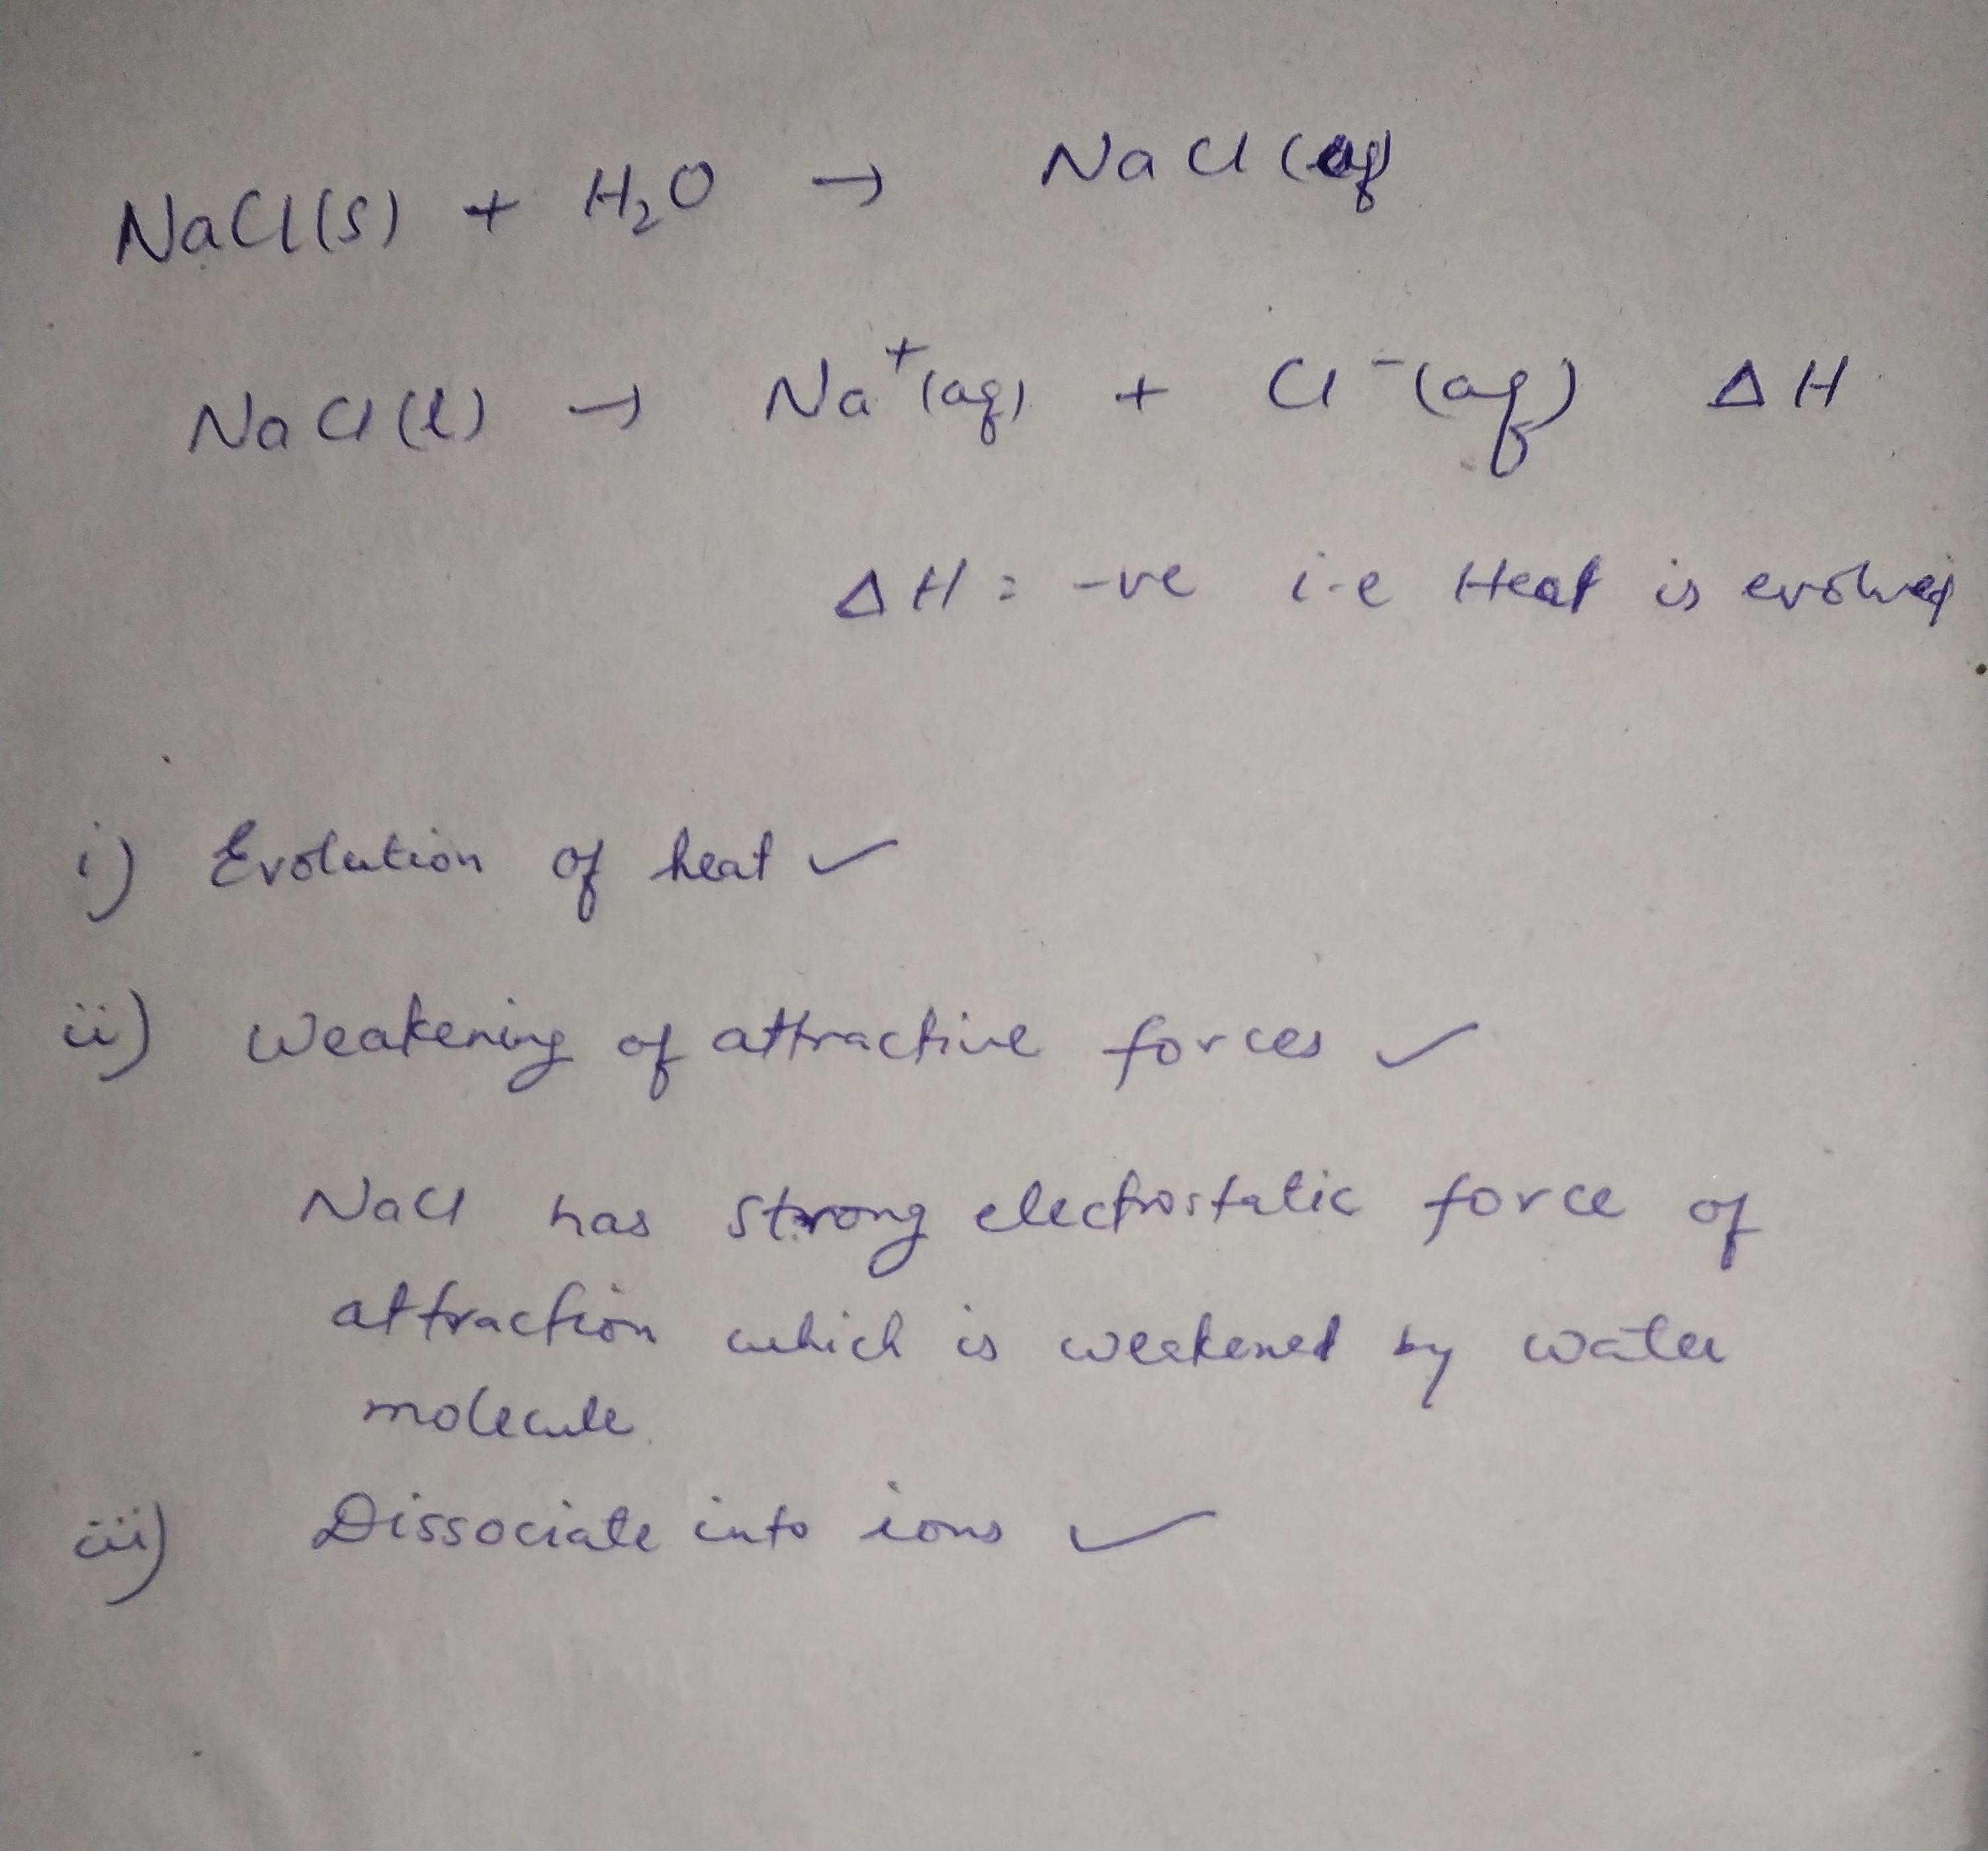 NaCl(s) + H₂O → NaCl(aq)
NaCl(l) → Na⁺(aq) + Cl⁻(aq) ΔH
ΔH = -ve i.e Heat is evolved
i) Evolution of heat ✓
ii) Weakening of attractive forces ✓
NaCl has strong electrostatic force of
attraction which is weakened by water
molecule
iii) Dissociate into ions ✓